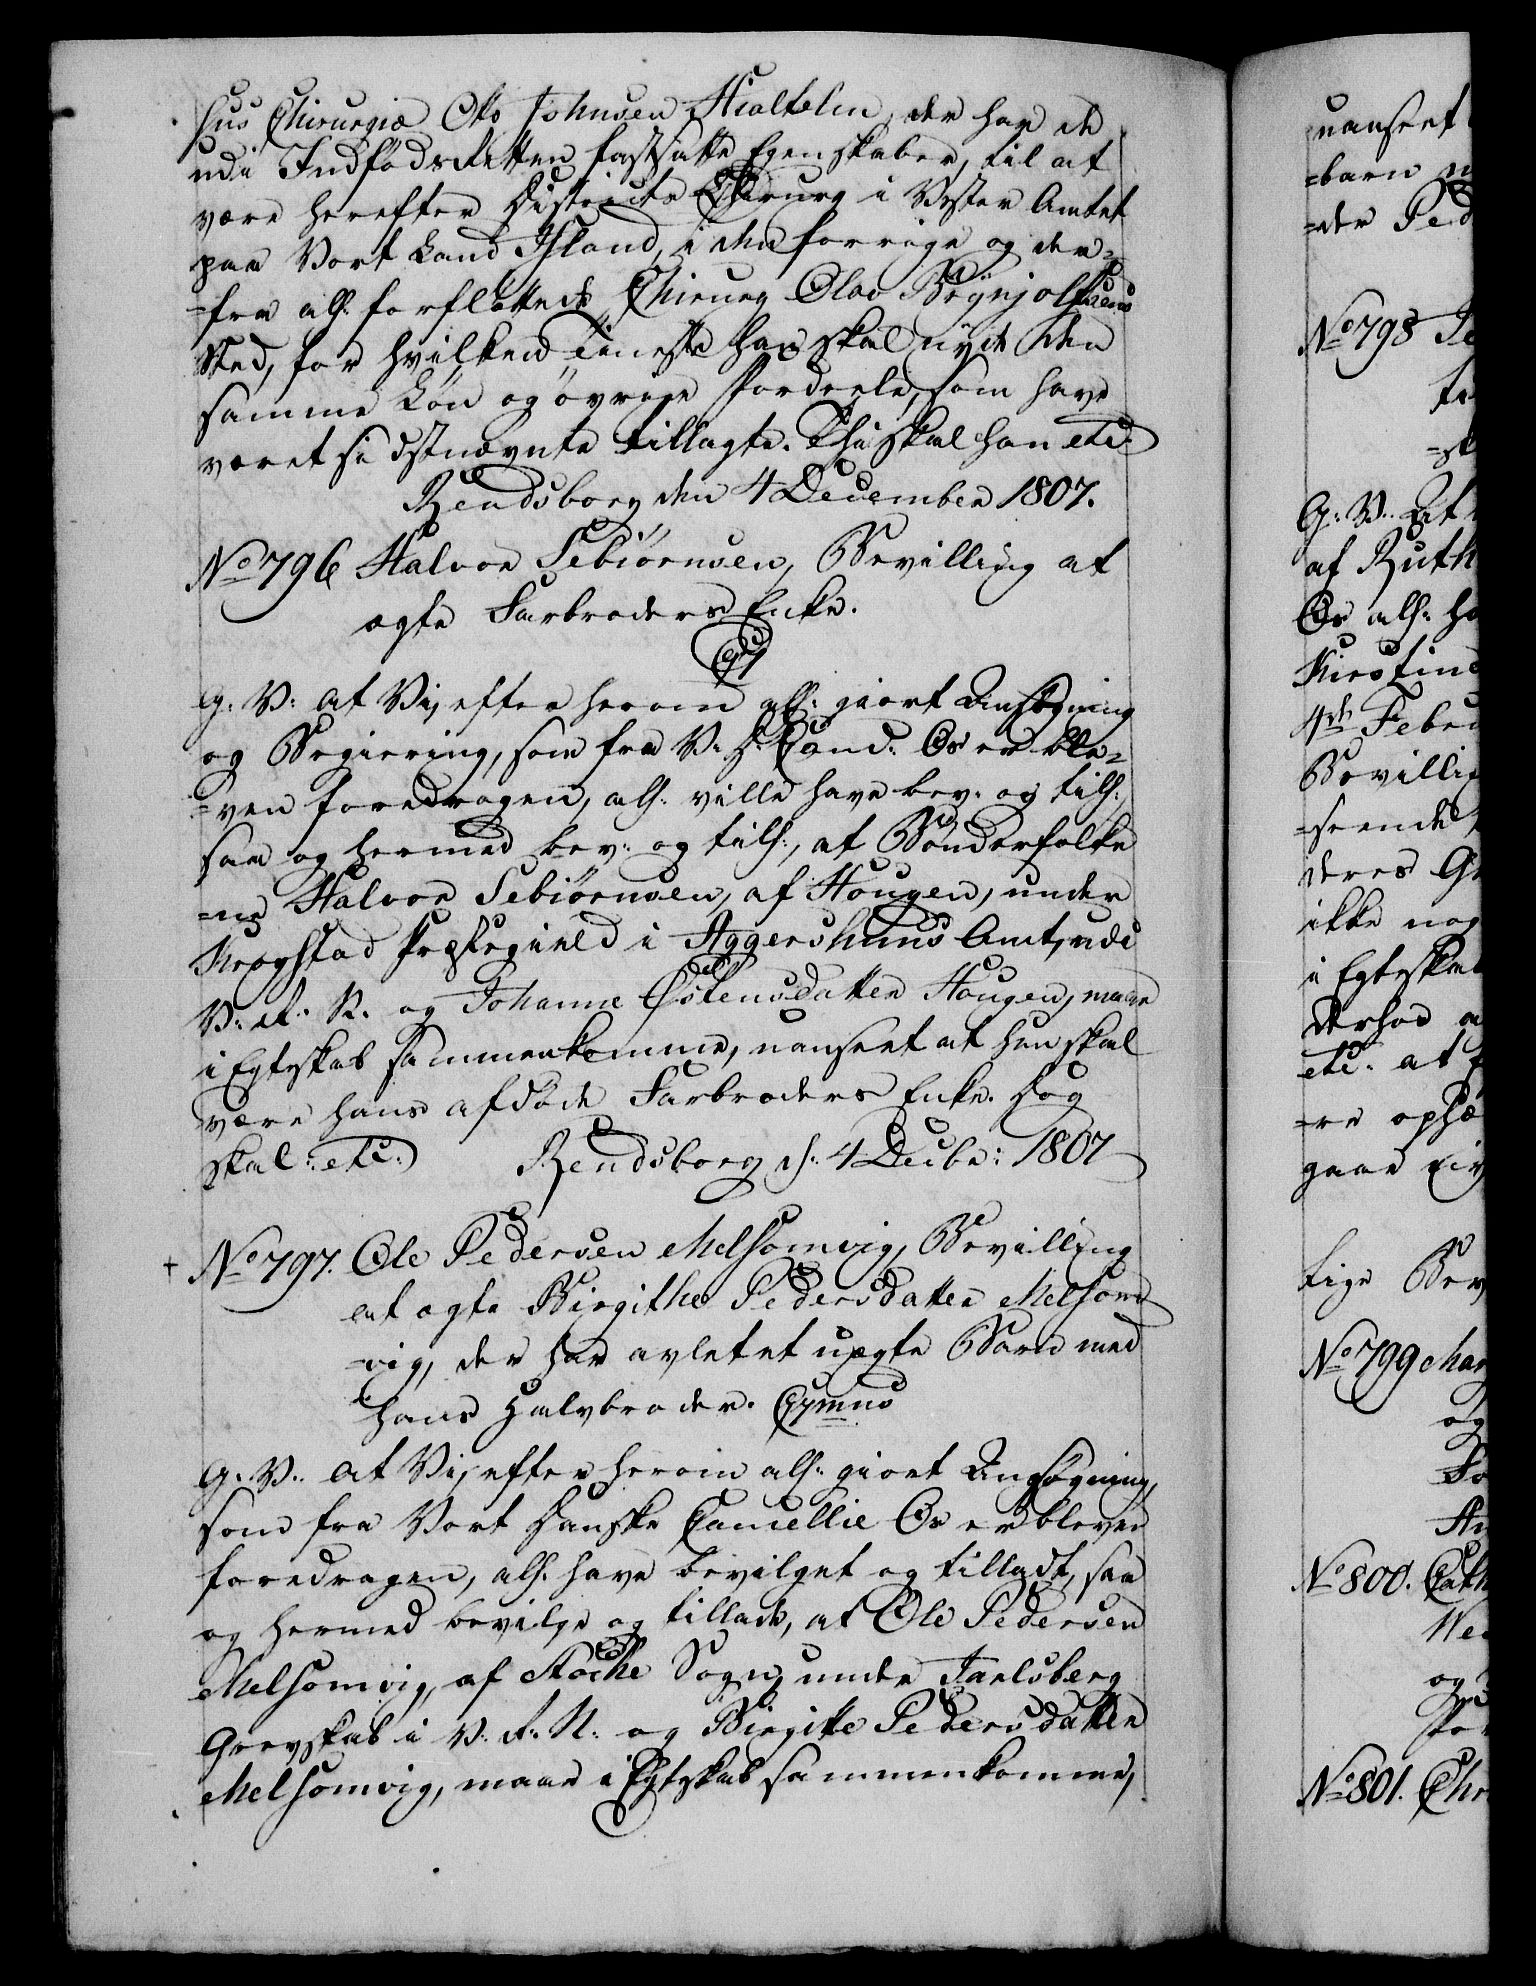 sus Chirurgiæ Oto Johnsen Hialtelin, der har de
udi Indfødsretten fastsatte Egenskaber, til at
være herefter Districts Chirurg i Vester Amtet
paa Vort Land Island, i den forrige og der-
=fra alf. forflottede Chirurg Olav Brynjolfsens
Sted, for hvilken Tieneste han skal nyde den
samme Løn og øvrige Fordeele, som have
været sidstnævnte tillagte. Thi skal han etc.
Rendsborg den 4 December 1807.
No 796 Halvor Sebiørnsen, Bevilling at
ægte Farbroders Enke.
G: V: at Vi, efter herom alf: giort Ansøgning
og Begiering, som fra V. D. Cand. Os er ble-
=ven foredragen, alf. ville have bev. og till.,
saa og hermed bev: og till:, at Bønderfolke
=ne Halvor Sebiørnsen, af Hougen, under
Krogstad Præstegield i Aggershuus Amt, udi
V: R: N. og Johanne Østensdatter Hougen, maae
i Egteskab sammenkomme, uanseet at hun skal
være hans afdøde Farbroders Enke. Dog
skal: etc: Rendsborg d: 4 Decbr: 1807
+ No 797. Ole Pedersen Melsomvig, Bevilling
at ægte Birgithe Pedersdatter Melsom
=vig, der har avlet et uægte Barn med
hans Halvbroder.
G. V. at Vi, efter herom alf: giort Ansøgning,
som fra Vort Danske Cancellie Os er bleven
foredragen, alf. have bevilget og tilladt, saa
og hermed bevilge og tillade, at Ole Pedersen
Melsomvig, af Stocke Sogn, under Jarlsberg
Grevskab i V. R. N. og Birgitte Pedersdatter
Melsomvig, maae i Egteskab sammenkomme,
uanseet
=barn
=der Ped
No 798
G: V: At
af Ruth
Os alf: ha
Kirstine
4de Febru
Bevillin
=seende
deres
ikke nog
i Egteskab
derhos
etc. at
=re ophæ
gaar
tige Bev
No 799 Mar
og
No 800. Cath
og
No 801. Chr